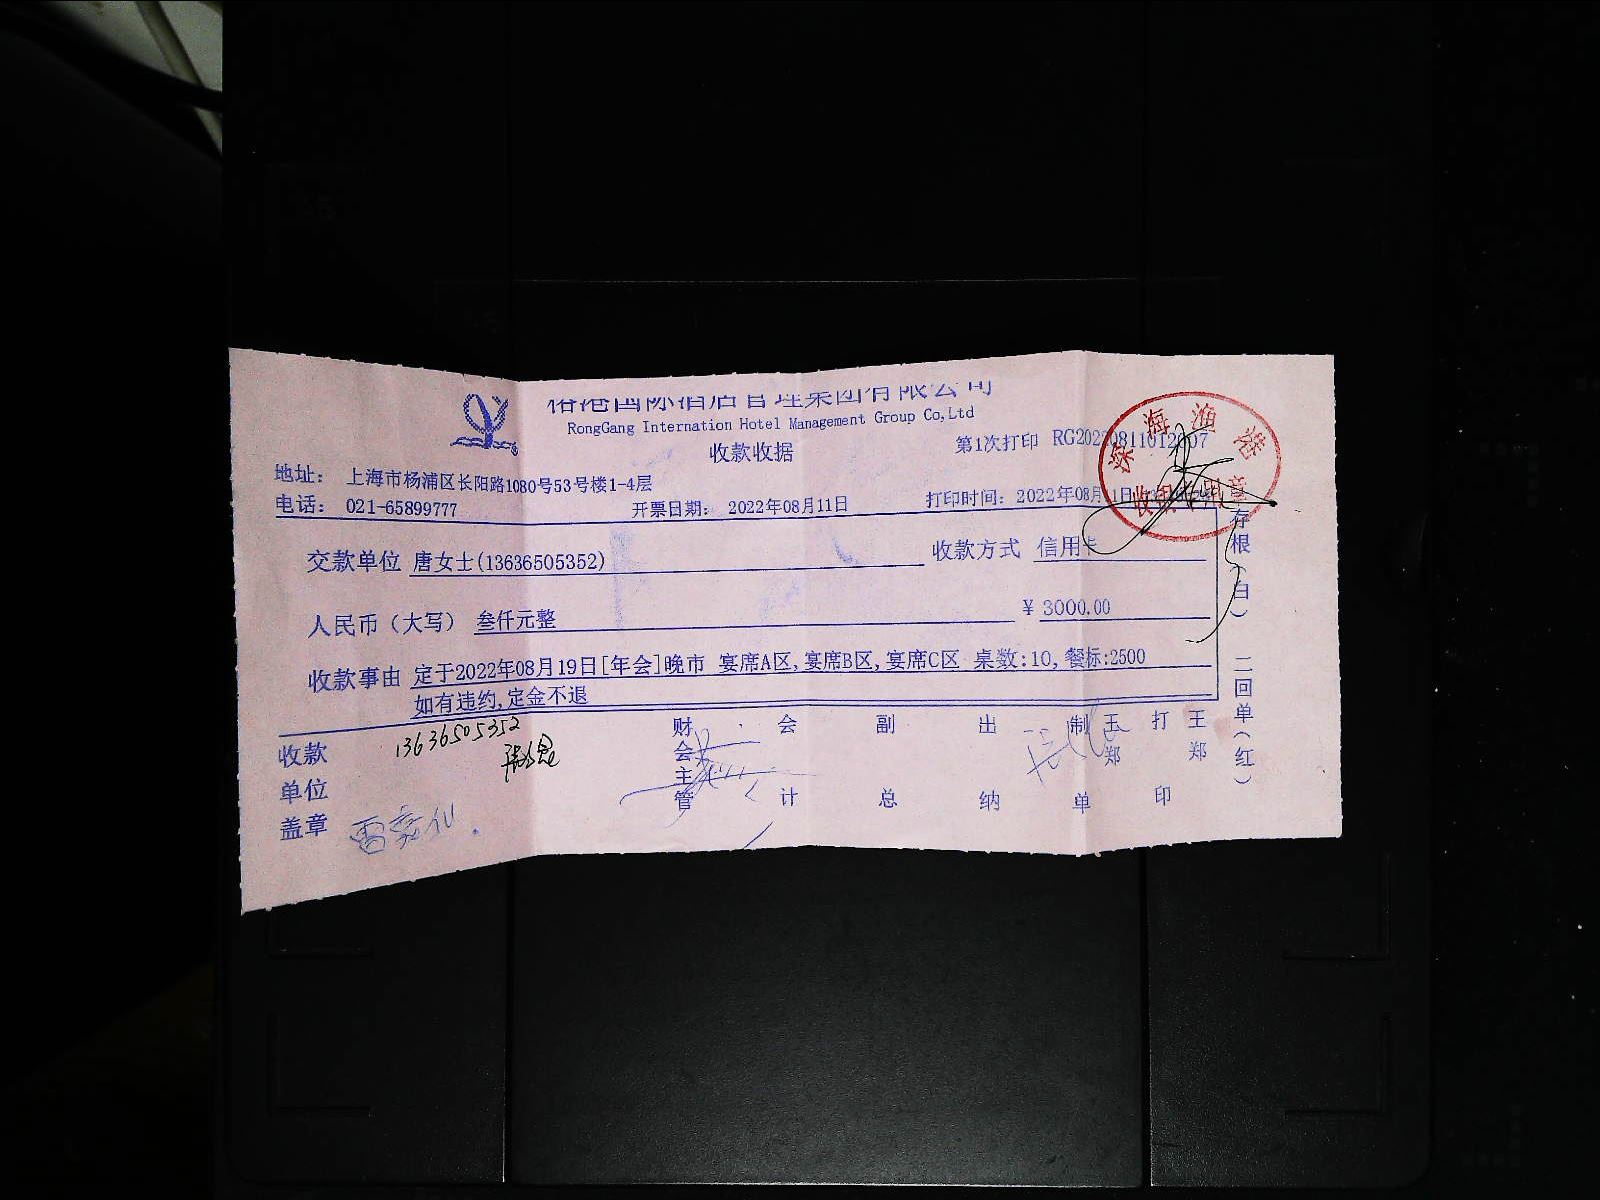 港国际酒店管理集团有限公司
RongGang Internation Hotel Management Group Co,Ltd
收款收据
第1次打印 RG20220811012007
深海渔港
收银专用章
地址： 上海市杨浦区长阳路1080号53号楼1-4层
电话： 021-65899777
开票日期： 2022年08月11日
打印时间：2022年08月11日
交款单位 唐女士(13636505352)
收款方式 信用卡
人民币（大写） 叁仟元整
¥ 3000.00
收款事由 定于2022年08月19日[年会]晚市 宴席A区,宴席B区,宴席C区 桌数:10,餐标:2500
如有违约,定金不退
存根（白） 二回单（红）
收款单位盖章
13636505352
财会主管
会计
副总
出纳
制单 王郑
打印 王郑